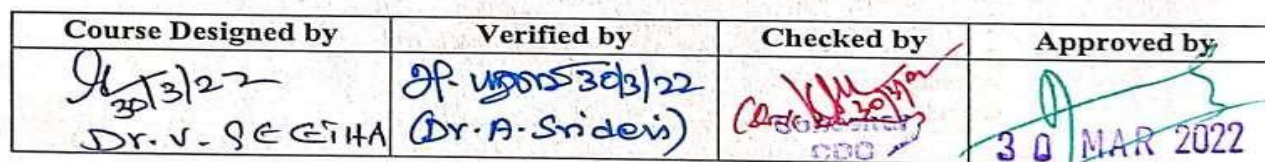 Course Designed by Verified by Checked by Approved by
30/3/22 30/3/22
Dr. V. SEETHA (Dr. A. Sridevi)
CDC 30 MAR 2022